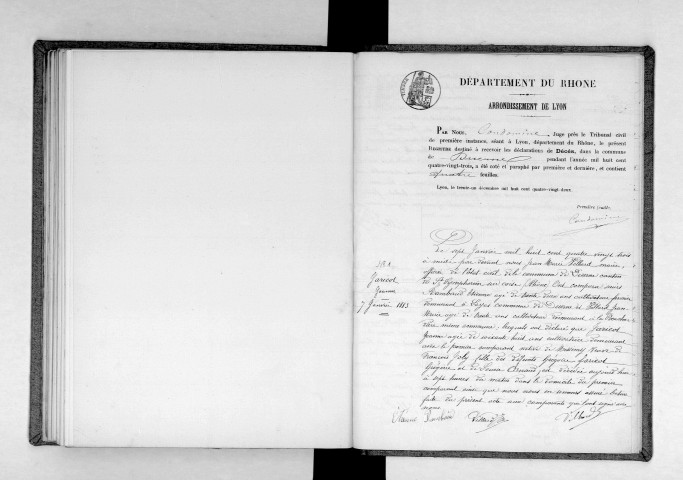 DÉPARTEMENT DU RHONE
ARRONDISSEMENT DE LYON
PAR NOUS, Condamine Juge près le Tribunal civil
de première instance, séant à Lyon, département du Rhône, le présent
REGISTRE destiné à recevoir les déclarations de Décès, dans la commune
de pendant l'année mil huit cent
quatre-vingt-trois, a été coté et paraphé par première et dernière, et contient
quatre feuilles.
Lyon, le trente-un décembre mil huit cent quatre-vingt-deux.
Première feuille.
Condamine
N° 1
Jaricot
Jeanne
7 Janvier 1883
Le sept Janvier mil huit cent quatre vingt trois
à midi par devant nous Jean Marie Villard maire,
officier de l'état civil de la commune de canton
de St Symphorien sur Coise, Rhône, Ont comparu
Etienne agé de trente deux ans cultivateur
demeurant à commune de et Villard Jean
Marie agé de trente ans cultivateur demeurant à la
même commune; lesquels ont déclaré que Jaricot
Jeanne agée de soixante huit ans cultivatrice demeurant
avec le premier comparant native de veuve de
François Joly fille des défunts Grégoire Jaricot
et de est décédée aujourd'hui
à sept heures du matin dans le domicile du premier
comparant ainsi que nous nous en sommes assuré lecture
faite du présent acte aux comparants qui l'ont signé avec
nous
Villard Villard